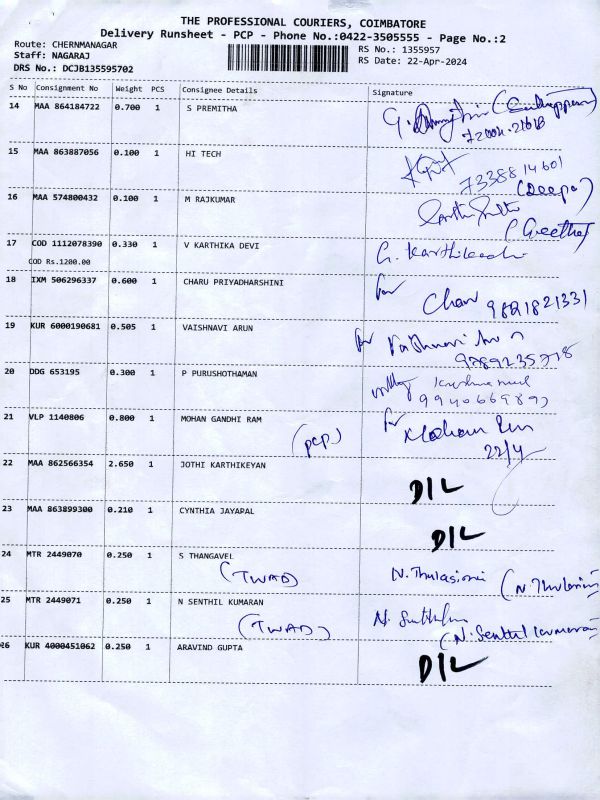 THE PROFESSIONAL COURIERS, COIMBATORE
Delivery Runsheet - PCP - Phone No.:0422-3505555 - Page No.:2
Route: CHERNMANAGAR
Staff: NAGARAJ
DRS No.: DCJB135595702
RS No.: 1355957
RS Date: 22-Apr-2024
S No Consignment No Weight PCS Consignee Details Signature
14 MAA 864184722 0.700 1 S PREMITHA
15 MAA 863887056 0.100 1 HI TECH
7338814601
(Deepa)
16 MAA 574800432 0.100 1 M RAJKUMAR
(Geetha)
17 COD 1112078390 0.330 1 V KARTHIKA DEVI G. Karthikadevi
COD Rs.1200.00
18 IXM 506296337 0.600 1 CHARU PRIYADHARSHINI for Charu 9821821331
19 KUR 6000190681 0.505 1 VAISHNAVI ARUN for Vaishnavi Arun
9789235718
20 DDG 653195 0.300 1 P PURUSHOTHAMAN
9940669897
21 VLP 1140806 0.800 1 MOHAN GANDHI RAM for Mohan Ram
(PCP) 22/4
22 MAA 862566354 2.650 1 JOTHI KARTHIKEYAN D/L
23 MAA 863899300 0.210 1 CYNTHIA JAYAPAL D/L
24 MTR 2449070 0.250 1 S THANGAVEL
(TWAD) N. Thulasimani (N. Thulasimani
25 MTR 2449071 0.250 1 N SENTHIL KUMARAN
(TWAD) (N. Senthil Kumaran)
26 KUR 4000451062 0.250 1 ARAVIND GUPTA D/L